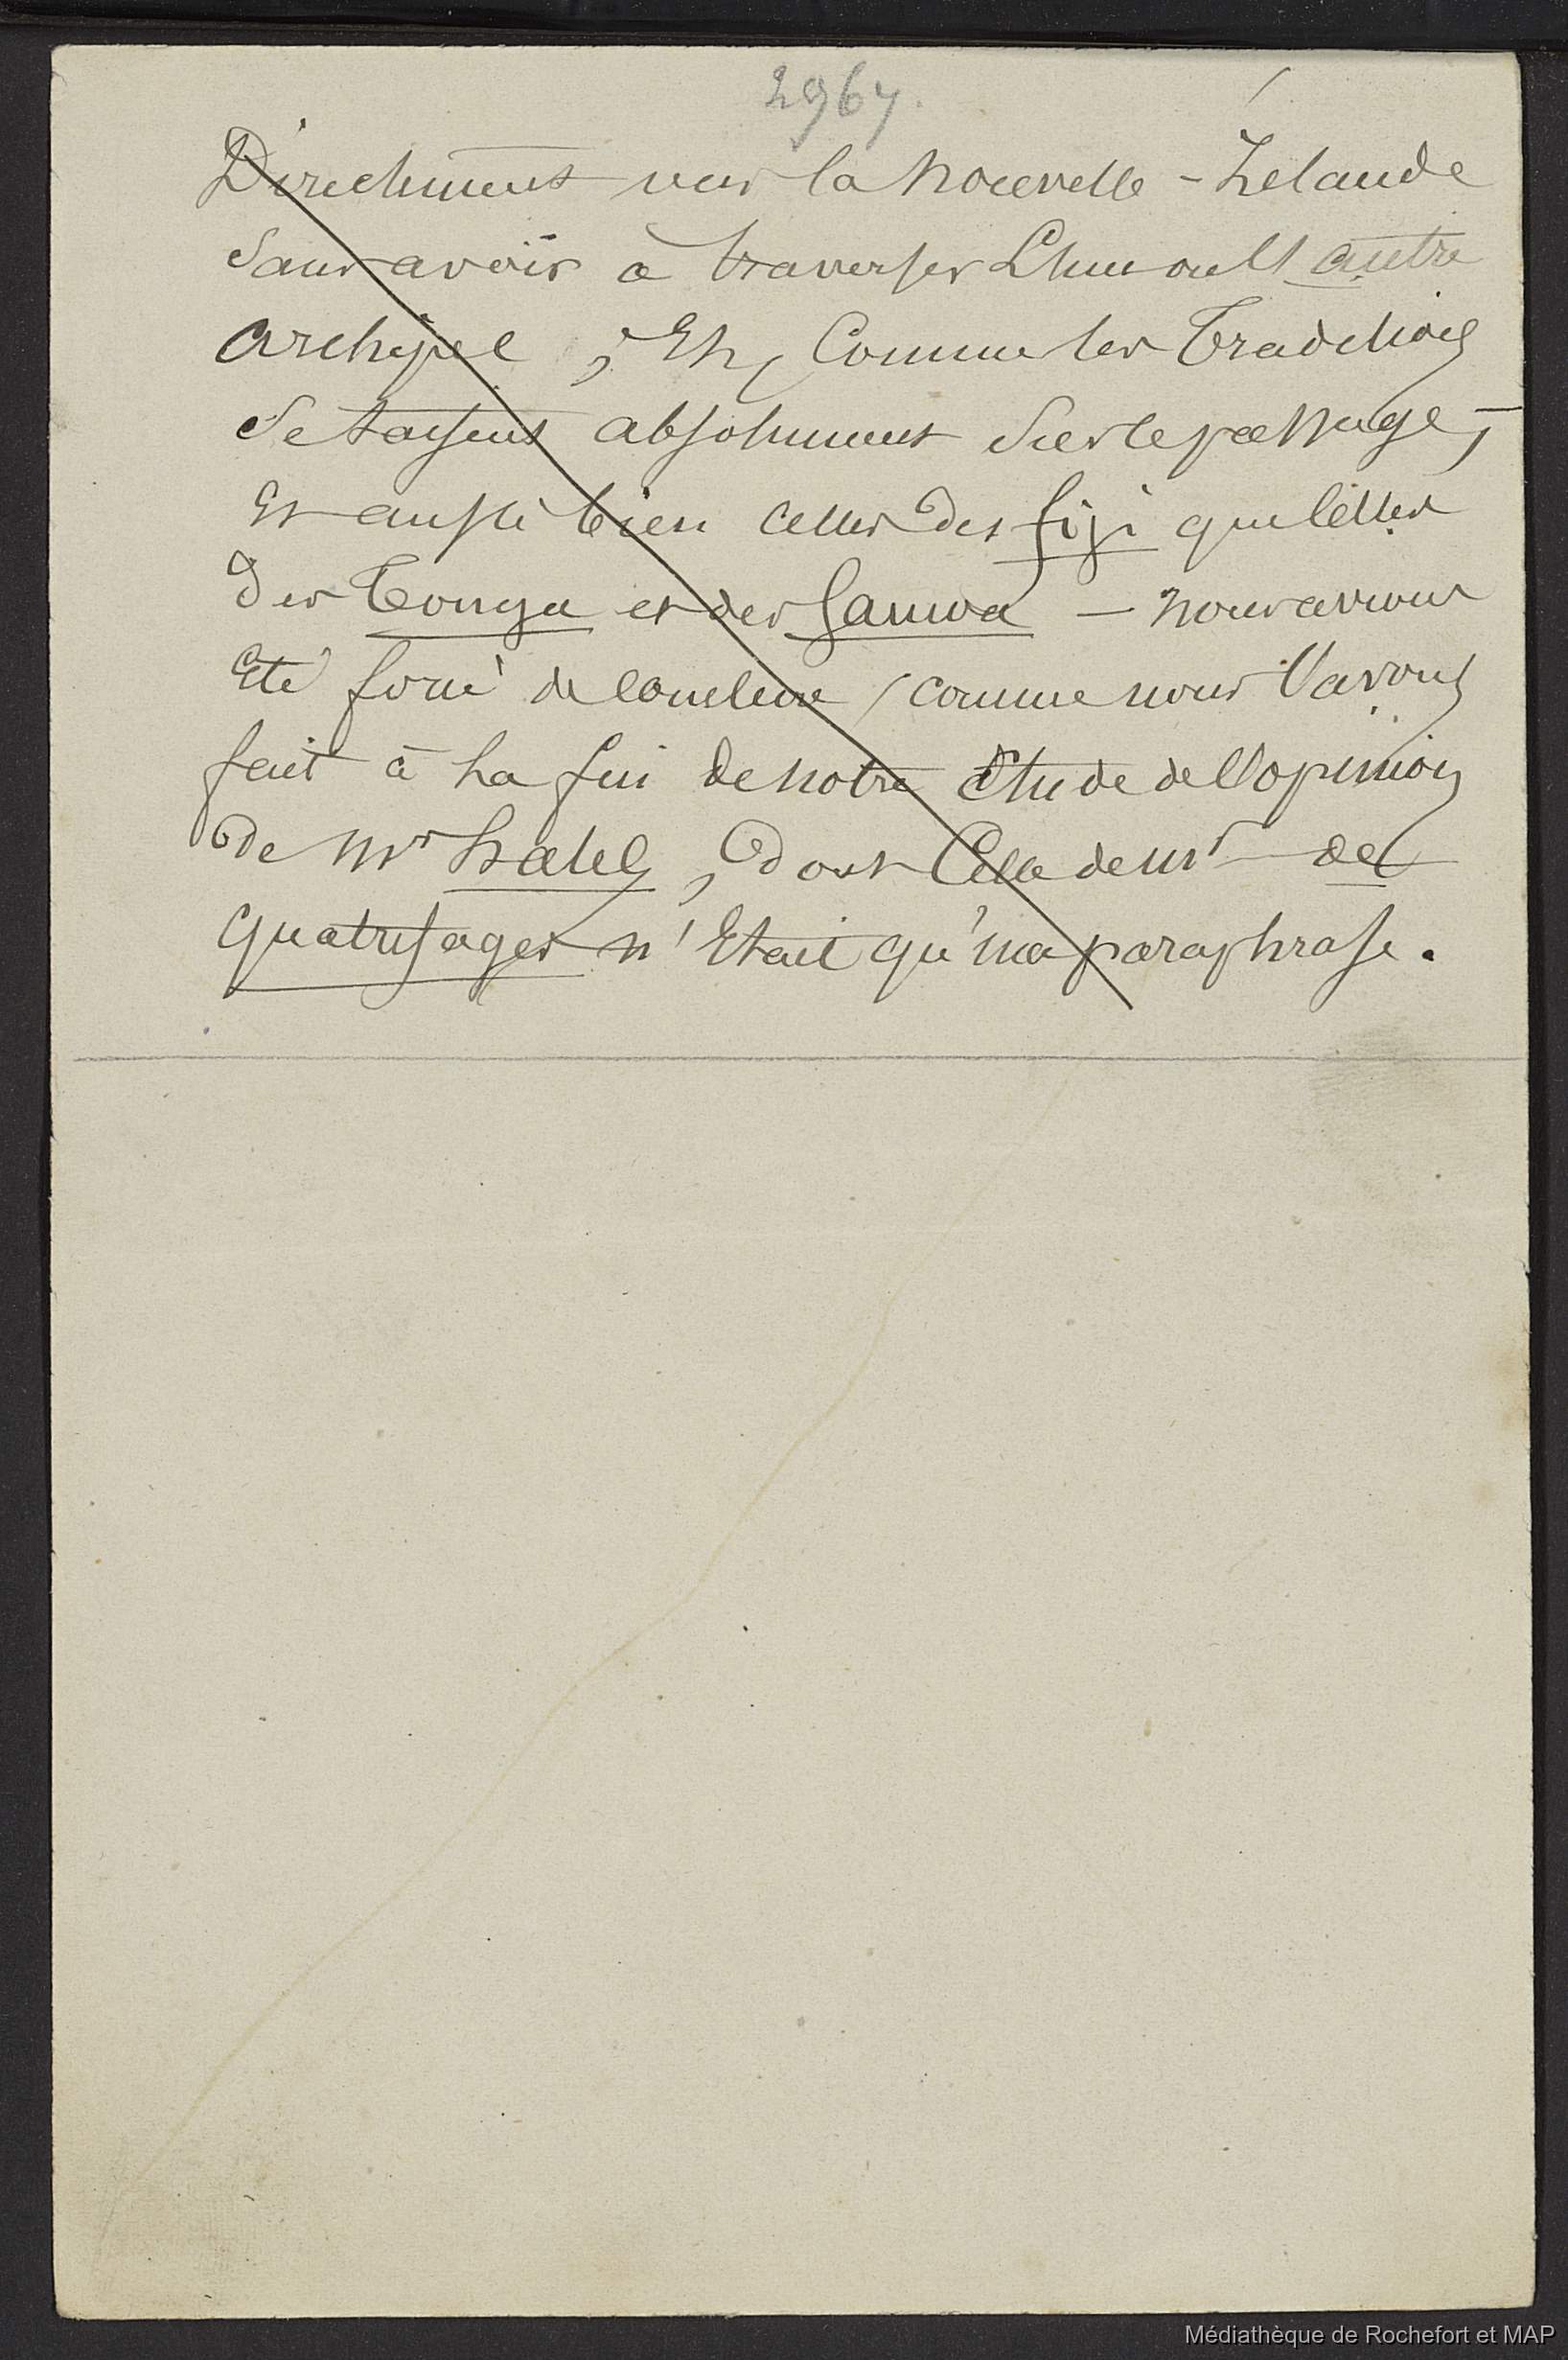 2967.
Directement vers la Nouvelle-Zélande
Sans avoir à traverser L'un ou l'autre
archipel, Et, Comme les Traditions
Se taisent absolument Sur le passage,
Et aussi bien celles des fiji que celles
Des Tonga et des Samoa — nous avions
Eté forcé de conclure, comme nous l'avons
fait à La fin de notre étude de l'opinion
de Mr hale, dont Celle de Mr de
quatrefages n'était qu'une paraphrase.
Médiathèque de Rochefort et MAP